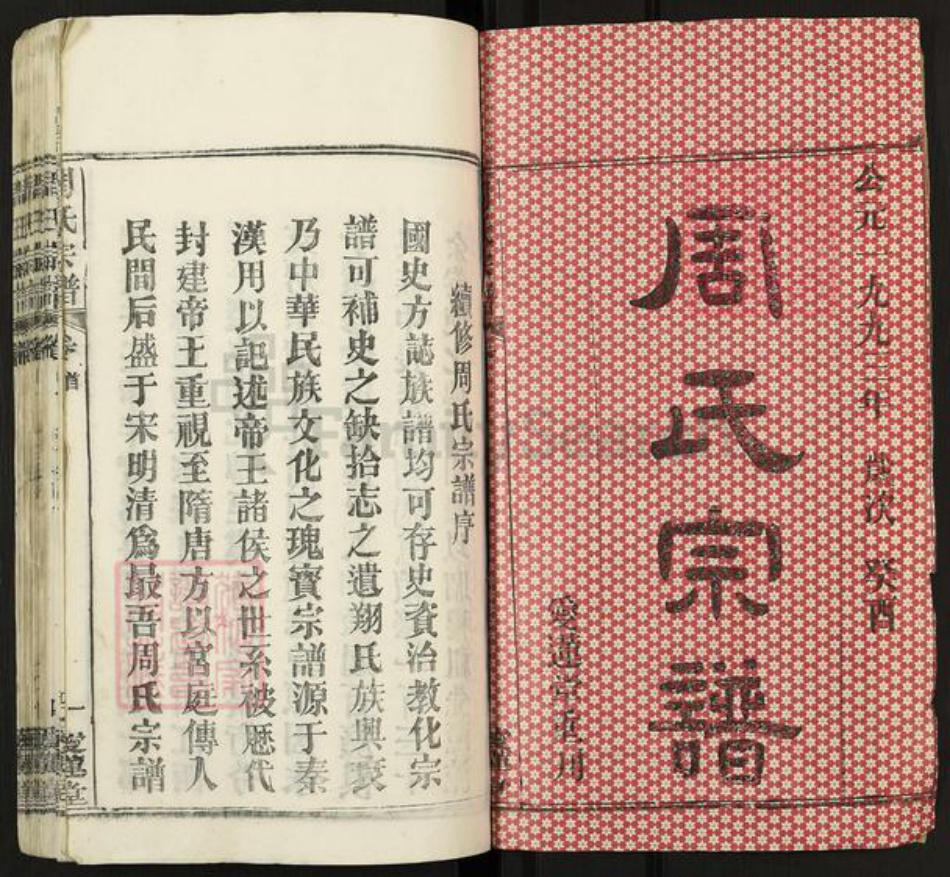 公元一九九三年 歲次 癸酉
周氏宗譜
愛蓮堂重刊
續修周氏宗譜序
國史方誌族譜均可存史資治教化宗
譜可補史之缺拾志之遺翔氏族興衰
乃中華民族文化之瑰寶宗譜源于秦
漢用以記述帝王諸侯之世系被歷代
封建帝王重視至隋唐方以宮庭傳入
民間后盛于宋明清爲最吾周氏宗譜
周氏宗譜 卷首
一 愛蓮堂